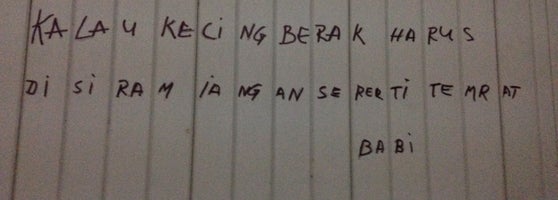 KALAU KECING BERAK HARUS
DI SIRAM JANGAN SERERTI TEMRAT
BABI